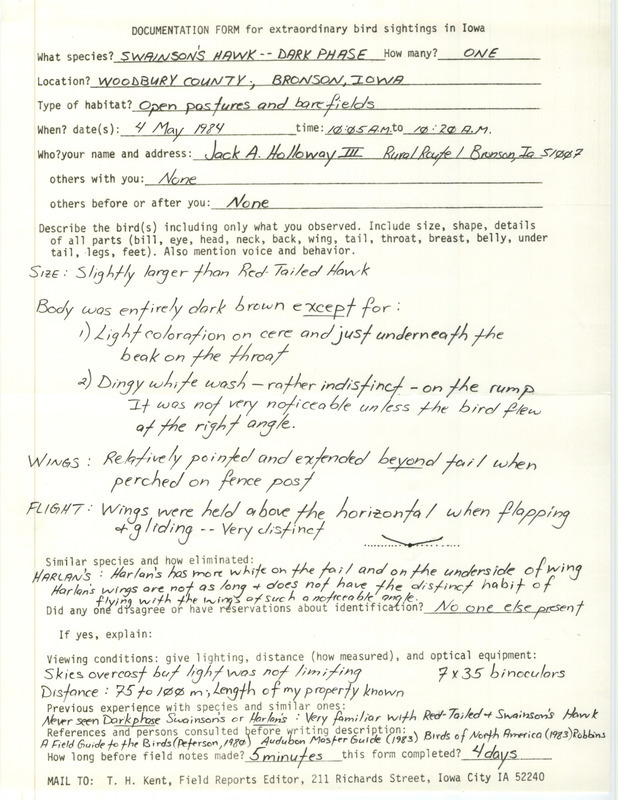 DOCUMENTATION FORM for extraordinary bird sightings in Iowa
What species? SWAINSON'S HAWK -- DARK PHASE How many? ONE
Location? WOODBURY COUNTY, BRONSON, IOWA
Type of habitat? Open pastures and bare fields
When? date(s): 4 May 1984 time: 10:05 A.M. to 10:20 A.M.
Who?your name and address: Jack A. Holloway III Rural Route 1 Bronson, Ia 51007
others with you: None
others before or after you: None
Describe the bird(s) including only what you observed. Include size, shape, details
of all parts (bill, eye, head, neck, back, wing, tail, throat, breast, belly, under
tail, legs, feet). Also mention voice and behavior.
SIZE: Slightly larger than Red-Tailed Hawk
Body was entirely dark brown except for:
1) Light coloration on cere and just underneath the
beak on the throat
2) Dingy white wash - rather indistinct - on the rump
It was not very noticeable unless the bird flew
at the right angle.
WINGS: Relatively pointed and extended beyond tail when
perched on fence post
FLIGHT: Wings were held above the horizontal when flapping
+ gliding -- Very distinct
Similar species and how eliminated:
HARLAN'S: Harlan's has more white on the tail and on the underside of wing
Harlan's wings are not as long + does not have the distinct habit of
flying with the wings at such a noticeable angle.
Did any one disagree or have reservations about identification? No one else present
If yes, explain:
Viewing conditions: give lighting, distance (how measured), and optical equipment:
Skies overcast but light was not limiting 7x35 binoculars
Distance: 75 to 100 m; Length of my property known
Previous experience with species and similar ones:
Never seen Dark phase Swainson's or Harlan's: Very familiar with Red-Tailed + Swainson's Hawk
References and persons consulted before writing description:
A Field Guide to the Birds (Peterson, 1980) Audubon Master Guide (1983) Birds of North America (1983) Robbins
How long before field notes made? 5 minutes this form completed? 4 days
MAIL TO: T. H. Kent, Field Reports Editor, 211 Richards Street, Iowa City IA 52240